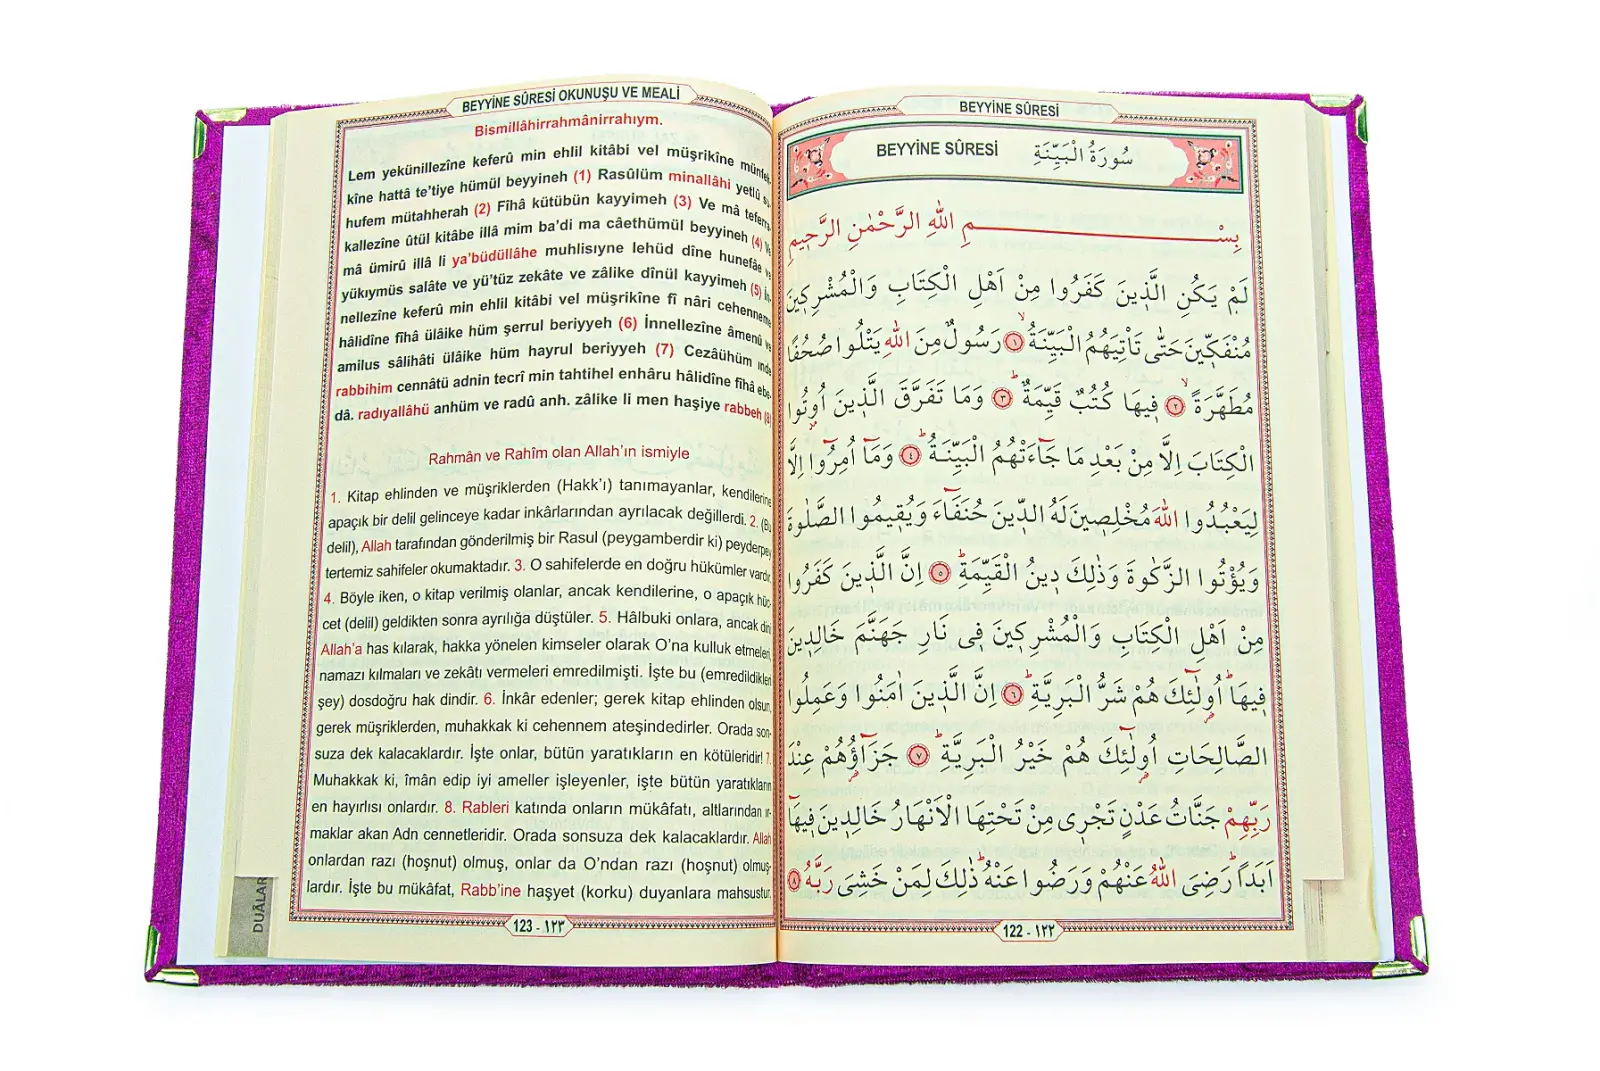 BEYYİNE SÛRESİ OKUNUŞU VE MEALİ
Bismillâhirrahmânirrahıym.
Lem yekünillezîne keferû min ehlil kitâbi vel müşrikîne münfek-
kîne hattâ te'tiye hümül beyyineh (1) Rasûlüm minallâhi yetlû su-
hufem mütahherah (2) Fîhâ kütübün kayyimeh (3) Ve mâ teferra-
kallezîne ûtül kitâbe illâ mim ba'di ma câethümül beyyineh (4) Ve
mâ ümirû illâ li ya'büdüllâhe muhlisıyne lehüd dîne hunefâe ve
yükıymüs salâte ve yü'tüz zekâte ve zâlike dînül kayyimeh (5) İn-
nellezîne keferû min ehlil kitâbi vel müşrikîne fî nâri cehenneme
hâlidîne fîhâ ülâike hüm şerrul beriyyeh (6) İnnellezîne âmenû ve
amilus sâlihâti ülâike hüm hayrul beriyyeh (7) Cezâühüm ınde
rabbihim cennâtü adnin tecrî min tahtihel enhâru hâlidîne fîhâ ebe-
dâ. radıyallâhü anhüm ve radû anh. zâlike li men haşiye rabbeh (8)
Rahmân ve Rahîm olan Allah'ın ismiyle
1. Kitap ehlinden ve müşriklerden (Hakk'ı) tanımayanlar, kendilerine
apaçık bir delil gelinceye kadar inkârlarından ayrılacak değillerdi. 2. (Bu
delil), Allah tarafından gönderilmiş bir Rasul (peygamberdir ki) peyderpey
tertemiz sahifeler okumaktadır. 3. O sahifelerde en doğru hükümler vardır.
4. Böyle iken, o kitap verilmiş olanlar, ancak kendilerine, o apaçık hüc-
cet (delil) geldikten sonra ayrılığa düştüler. 5. Hâlbuki onlara, ancak dini
Allah'a has kılarak, hakka yönelen kimseler olarak O'na kulluk etmeleri,
namazı kılmaları ve zekâtı vermeleri emredilmişti. İşte bu (emredildikleri
şey) dosdoğru hak dindir. 6. İnkâr edenler; gerek kitap ehlinden olsun,
gerek müşriklerden, muhakkak ki cehennem ateşindedirler. Orada son-
suza dek kalacaklardır. İşte onlar, bütün yaratıkların en kötüleridir! 7.
Muhakkak ki, îmân edip iyi ameller işleyenler, işte bütün yaratıkların
en hayırlısı onlardır. 8. Rableri katında onların mükâfatı, altlarından ır-
maklar akan Adn cennetleridir. Orada sonsuza dek kalacaklardır. Allah
onlardan razı (hoşnut) olmuş, onlar da O'ndan razı (hoşnut) olmuş-
lardır. İşte bu mükâfat, Rabb'ine haşyet (korku) duyanlara mahsustur.
123 - ١٢٣
DUÂLAR
BEYYİNE SÛRESİ
BEYYİNE SÛRESİ سُورَةُ الْبَيِّنَةِ
بِسْمِ اللهِ الرَّحْمٰنِ الرَّحِيمِ
لَمْ يَكُنِ الَّذِينَ كَفَرُوا مِنْ اَهْلِ الْكِتَابِ وَالْمُشْرِكِينَ
مُنْفَكِّينَ حَتّٰى تَأْتِيَهُمُ الْبَيِّنَةُۙ ﴿١﴾ رَسُولٌ مِنَ اللهِ يَتْلُوا صُحُفًا
مُطَهَّرَةًۙ ﴿٢﴾ فِيهَا كُتُبٌ قَيِّمَةٌۜ ﴿٣﴾ وَمَا تَفَرَّقَ الَّذِينَ اُوتُوا
الْكِتَابَ اِلَّا مِنْ بَعْدِ مَا جَٓاءَتْهُمُ الْبَيِّنَةُۜ ﴿٤﴾ وَمَٓا اُمِرُٓوا اِلَّا
لِيَعْبُدُوا اللهَ مُخْلِصِينَ لَهُ الدِّينَ حُنَفَٓاءَ وَيُقِيمُوا الصَّلٰوةَ
وَيُؤْتُوا الزَّكٰوةَ وَذٰلِكَ دِينُ الْقَيِّمَةِۜ ﴿٥﴾ اِنَّ الَّذِينَ كَفَرُوا
مِنْ اَهْلِ الْكِتَابِ وَالْمُشْرِكِينَ فِى نَارِ جَهَنَّمَ خَالِدِينَ
فِيهَاۜ اُولٰٓئِكَ هُمْ شَرُّ الْبَرِيَّةِۜ ﴿٦﴾ اِنَّ الَّذِينَ اٰمَنُوا وَعَمِلُوا
الصَّالِحَاتِ اُولٰٓئِكَ هُمْ خَيْرُ الْبَرِيَّةِۜ ﴿٧﴾ جَزَٓاؤُهُمْ عِنْدَ
رَبِّهِمْ جَنَّاتُ عَدْنٍ تَجْرِى مِنْ تَحْتِهَا الْاَنْهَارُ خَالِدِينَ فِيهَٓا
اَبَدًاۜ رَضِىَ اللهُ عَنْهُمْ وَرَضُوا عَنْهُۜ ذٰلِكَ لِمَنْ خَشِىَ رَبَّهُ ﴿٨﴾
122 - ١٢٢